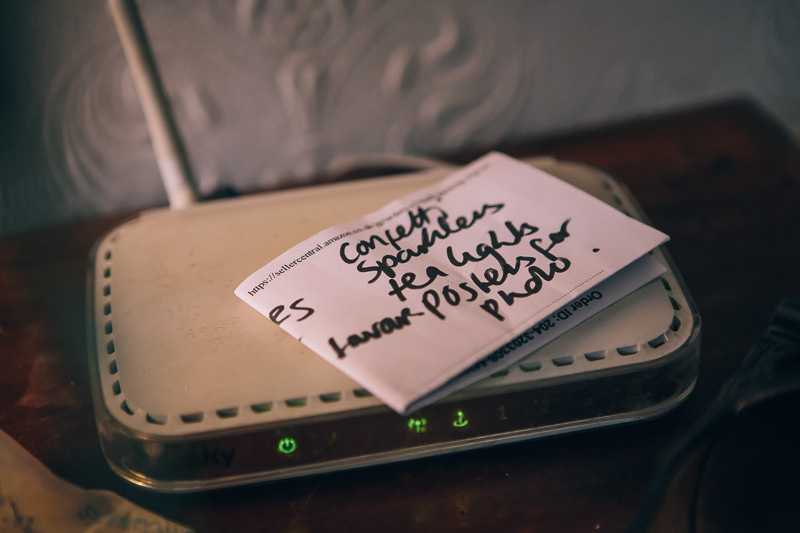 https://sellercentral.amazon.co.uk/
confetti
Sparklers
tea lights
es
Posters for
photo.
Order ID: 204-
sky